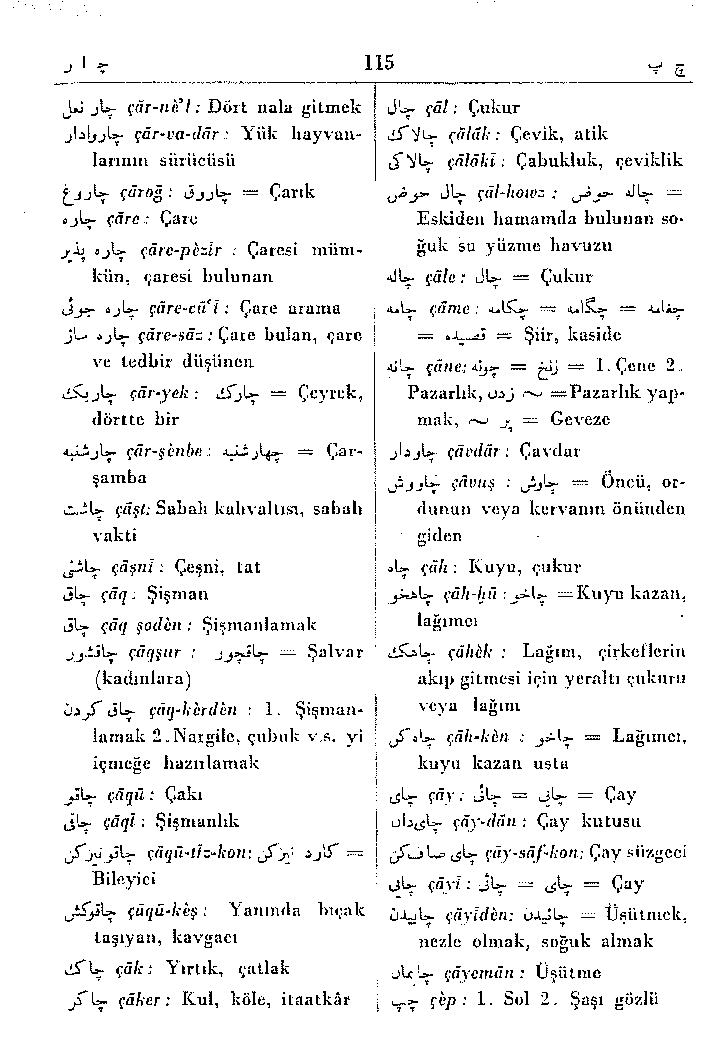 چ ا ر
115
چ پ
چار نعل çār-nè'l: Dört nala gitmek
چاروادار çār-va-dār: Yük hayvan-
larının sürücüsü
چاروغ çāroğ: چاروق = Çarık
چاره çāre: Çare
چاره پذیر çāre-pèzir : Çaresi müm-
kün, çaresi bulunan
چاره جوئی çāre-cū'ī: Çare arama
چاره ساز çāre-sāz: Çare bulan, çare
ve tedbir düşünen
چاریک çār-yek: چارک = Çeyrek,
dörtte bir
چارشنبه çār-şènbe: چهارشنبه = Çar-
şamba
چاشت çāşt: Sabah kahvaltısı, sabah
vakti
چاشنی çāşnī: Çeşni, tat
چاق çāq: Şişman
چاق çāq şodèn: Şişmanlamak
چاقشور çāqşur : چاقچور = Şalvar
(kadınlara)
چاق کردن çāq-kèrdèn : 1. Şişman-
lamak 2. Nargile, çubuk v.s. yi
içmeğe hazırlamak
چاقو çāqū: Çakı
چاقی çāqī: Şişmanlık
چاقو تیزکن çāqū-tīz-kon: کارد تیزکن =
Bileyici
چاقوکش çāqū-kèş: Yanında bıçak
taşıyan, kavgacı
چاک çāk: Yırtık, çatlak
چاکر çāker: Kul, köle, itaatkâr
چال çāl: Çukur
چالاک çālāk: Çevik, atik
چالاکی çālākī: Çabukluk, çeviklik
چال حوض çāl-howz : چاله حوض =
Eskiden hamamda bulunan so-
ğuk su yüzme havuzu
چاله çāle: چال = Çukur
چامه çāme: چکامه = چگامه = چغامه
= قصیده = Şiir, kaside
چانه çāne: چونه = زنخ = 1. Çene 2.
Pazarlık, زدن ~ = Pazarlık yap-
mak, ~ پر = Geveze
چاودار çāvdār: Çavdar
چاووش çāvuş : چاوش = Öncü, or-
dunun veya kervanın önünden
giden
چاه çāh: Kuyu, çukur
چاهخو çāh-ḫū: چاخو = Kuyu kazan,
lağımcı
چاهک çāhèk : Lağım, çirkeflerin
akıp gitmesi için yeraltı çukuru
veya lağım
چاه کن çāh-kèn : چاخو = Lağımcı,
kuyu kazan usta
چای çāy: چایی = چائی = Çay
چایدان çāy-dān: Çay kutusu
چای صاف کن çāy-sāf-kon: Çay süzgeci
چایی çāyī: چائی = چای = Çay
چاییدن çāyīdèn: چائیدن = Üşütmek,
nezle olmak, soğuk almak
چایمان çāyemān: Üşütme
چپ çèp: 1. Sol 2. Şaşı gözlü